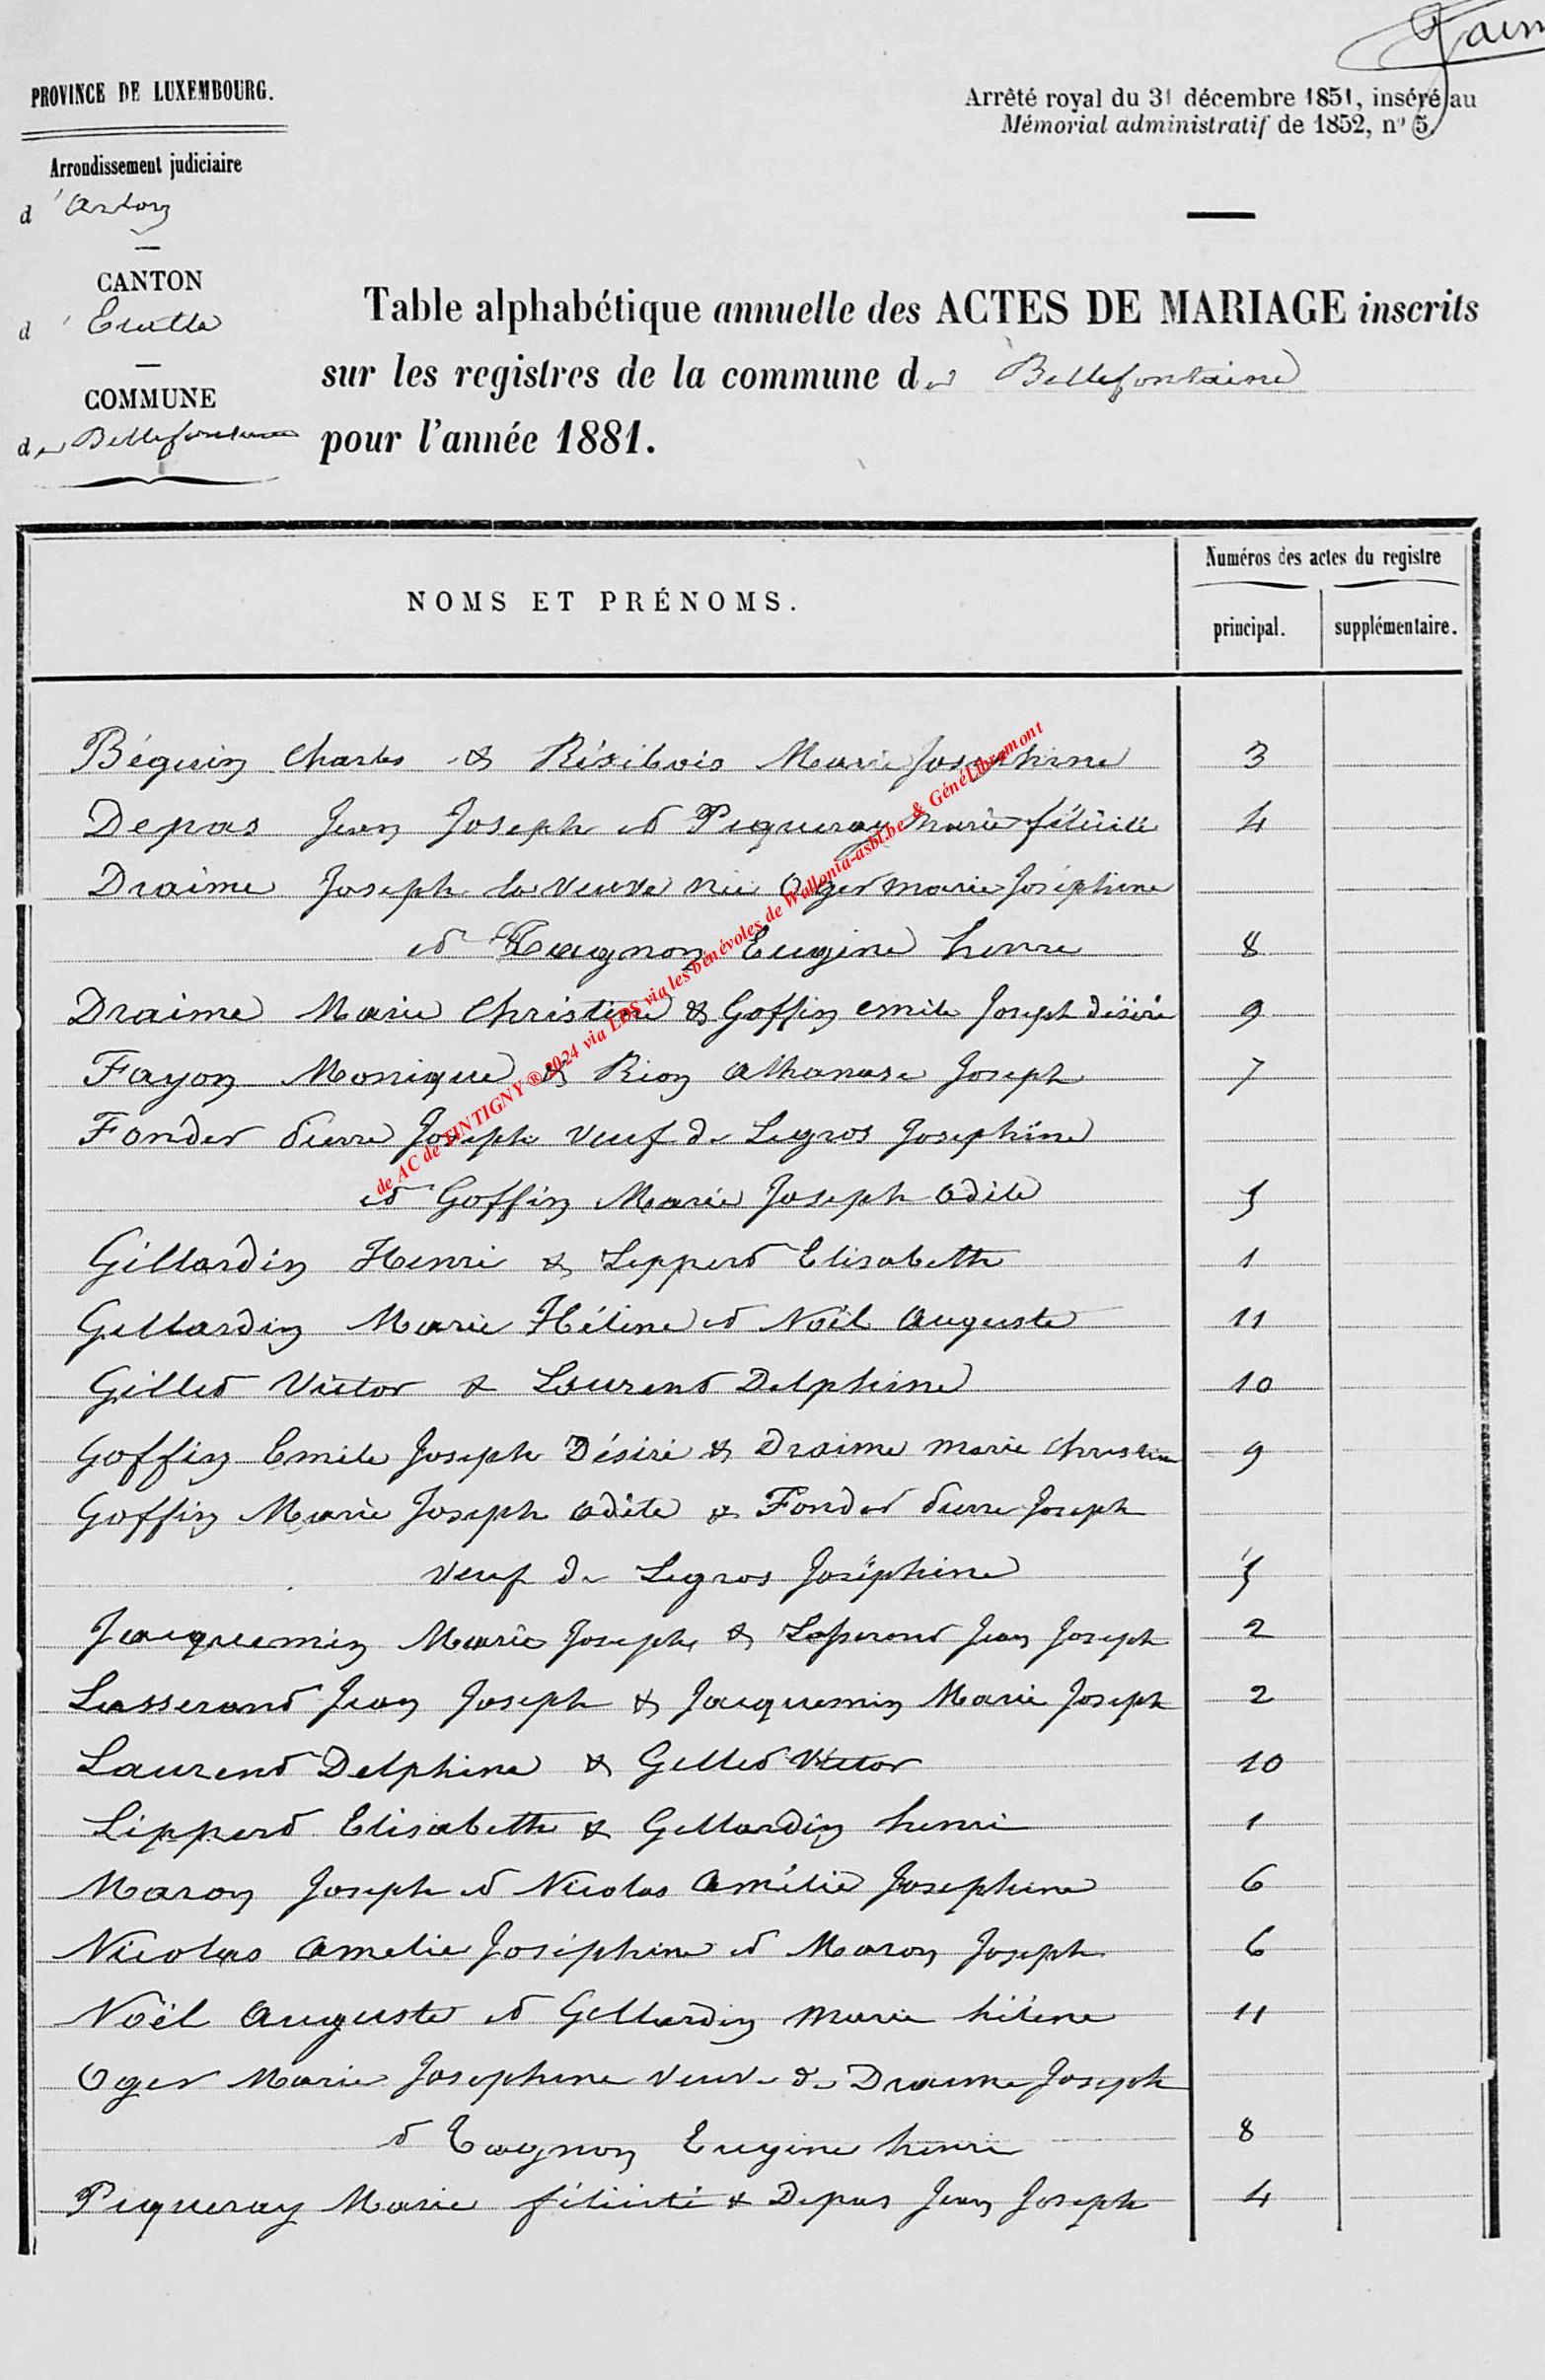 PROVINCE DE LUXEMBOURG.
Arrondissement judiciaire
d'Arlon
CANTON
d'Etalle
COMMUNE
de Bellefontaine
Arrêté royal du 31 décembre 1851, inséré au
Mémorial administratif de 1852, nº 5.
Table alphabétique annuelle des ACTES DE MARIAGE inscrits
sur les registres de la commune de Bellefontaine
pour l'année 1881.
NOMS ET PRÉNOMS.
Numéros des actes du registre
principal. supplémentaire.
Béguin Charles & Résibois Marie Josephine 3
Depas Jean Joseph et Piqueray Marie félicité 4
Draime Joseph la veuve née Oger Marie Joséphine
et Tagnon Eugène henri 8
Draime Marie Christine & Goffin emile Joseph désiré 9
Fayon Monique & Rion Athanase Joseph 7
Fonder Pierre Joseph veuf de Legros Josephine
et Goffin Marie Joseph Odile 5
Gillardin Henri & Leppert Elisabeth 1
Gillardin Marie Hélène et Noël Auguste 11
Gillet Victor & Laurent Delphine 10
Goffin Emile Joseph Désiré & Draime Marie Christine 9
Goffin Marie Joseph Odile & Fonder Pierre Joseph
veuf de Legros Joséphine 5
Jacquemin Marie Joseph & Lasserand Jean Joseph 2
Lasserand Jean Joseph & Jacquemin Marie Joseph 2
Laurent Delphine & Gillet Victor 10
Lippert Elisabeth & Gillardin henri 1
Maron Joseph et Nicolas Amélie Josephine 6
Nicolas Amelie Joséphine et Maron Joseph 6
Noël Auguste et Gillardin Marie hélène 11
Oger Marie Josephine veuve de Draime Joseph
et Tagnon Eugène henri 8
Piqueray Marie félicité & Depas Jean Joseph 4
de AC de TINTIGNY ® 2024 via LDS via les bénévoles de Wallonia-asbl.be & GénéLibramont